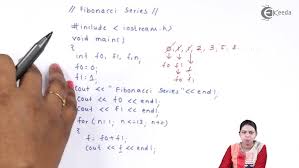 // Fibonacci Series //
Ekeeda
#include <iostream.h>
void main()
{
0, 1, 1, 2, 3, 5, 8
int f0, f1, f, n;
f0=0;
f0 f1 f
f1=1;
f0 f1 f
cout << "Fibonacci Series" << endl;
cout << f0 << endl;
cout << f1 << endl;
for (n=1; n<=13; n++)
{
f=f0+f1;
cout << f << endl;